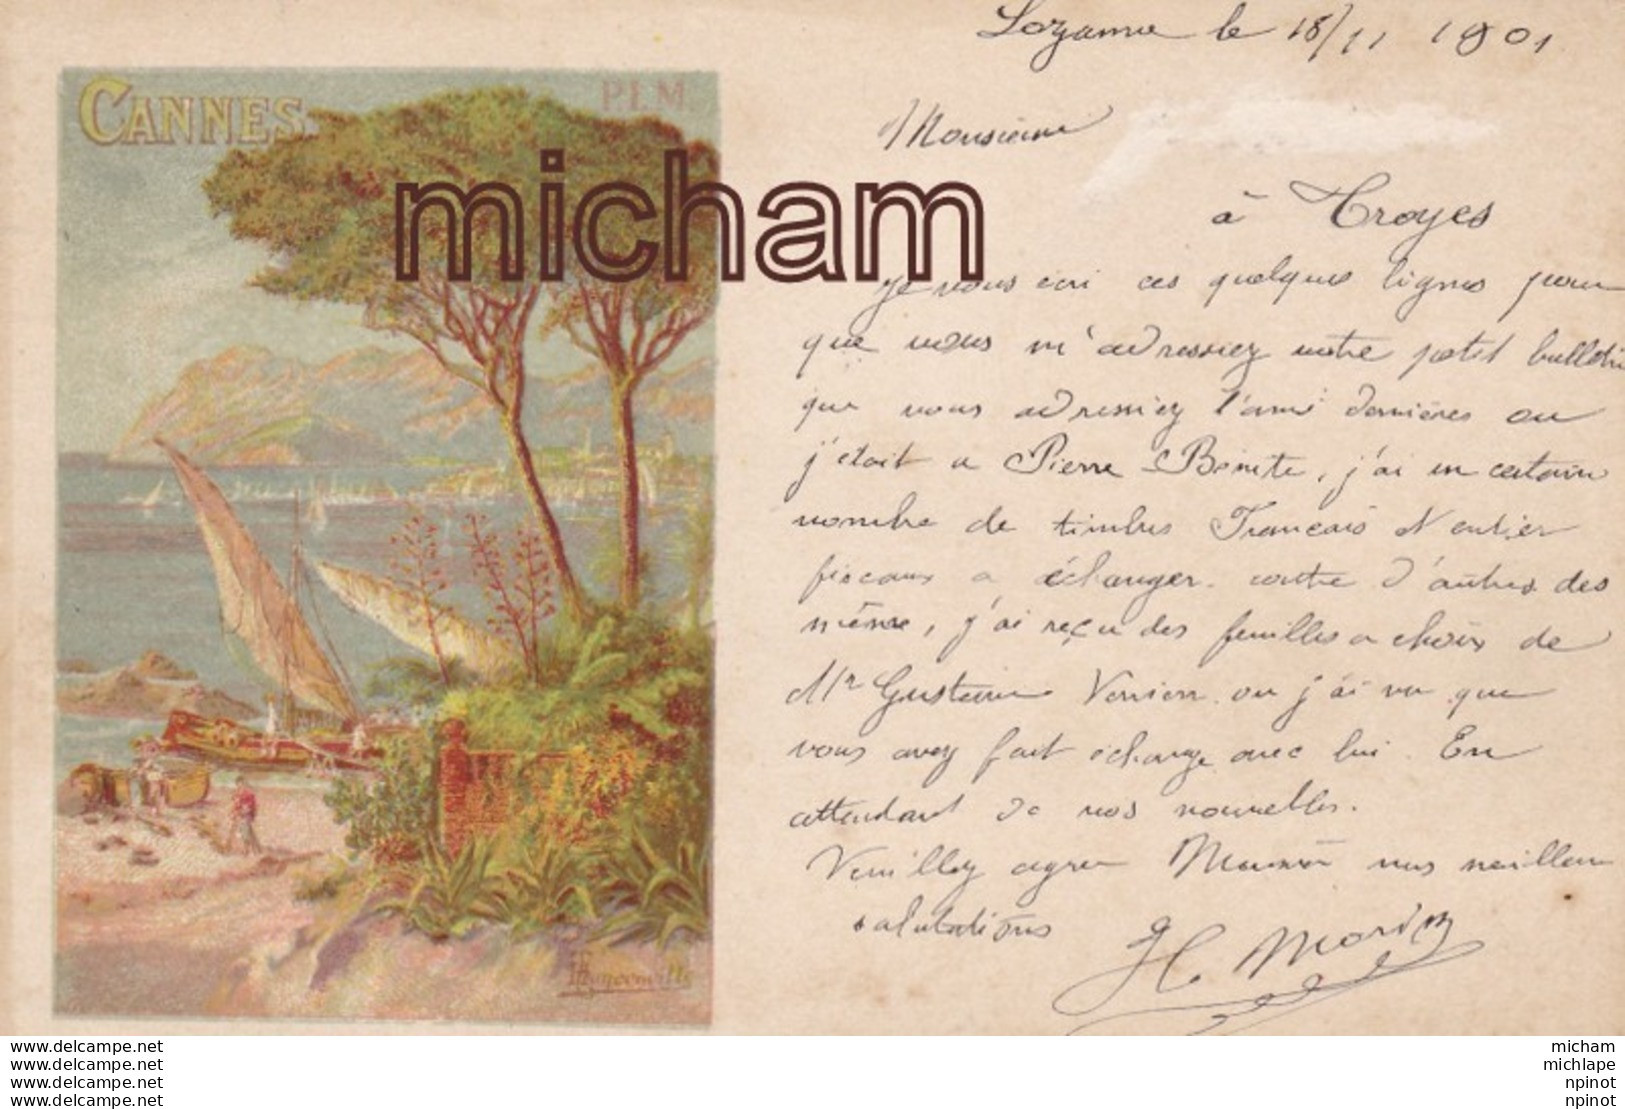 Lozanne le 18/11 1901
CANNES
P.L.M.
Monsieur
micham
à Troyes
Je vous écri ces quelques lignes pour
que vous m'adressiez votre petit bulletin
que vous adressiez l'anné dernières ou
j'était a Pierre Bénite, j'ai un certain
nombre de timbres Français et
fiscaux a échanger contre d'autres des
même, j'ai reçu des feuilles a choix de
Mr ou j'ai vu que
vous avez fait échange avec lui. En
attendant de vos nouvelles.
Veuillez agréer Monsieur mes meilleures
salutations
H. Morin
www.delcampe.net
www.delcampe.net
www.delcampe.net
www.delcampe.net
micham
michlape
npinot
npinot